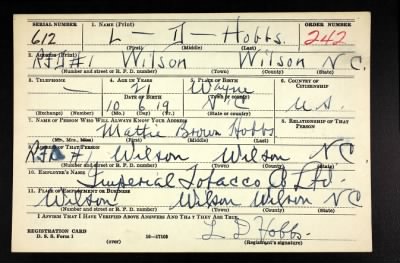 SERIAL NUMBER 1. NAME (Print) ORDER NUMBER
612 L — D — Hobbs. 242
(First) (Middle) (Last)
2. ADDRESS (Print)
RFD #1 Wilson Wilson N C.
(Number and street or R. F. D. number) (Town) (County) (State)
3. TELEPHONE 4. AGE IN YEARS 5. PLACE OF BIRTH 6. COUNTRY OF CITIZENSHIP
— 21 Wayne
DATE OF BIRTH (Town or county)
10 6 19 N C U.S.
(Exchange) (Number) (Mo.) (Day) (Yr.) (State or country)
7. NAME OF PERSON WHO WILL ALWAYS KNOW YOUR ADDRESS 8. RELATIONSHIP OF THAT PERSON
Mattie Brown Hobbs
(Mr., Mrs., Miss) (First) (Middle) (Last)
9. ADDRESS OF THAT PERSON
RFD #1 Wilson Wilson N C
(Number and street or R. F. D. number) (Town) (County) (State)
10. EMPLOYER'S NAME
Imperial Tobacco Co Ltd.
11. PLACE OF EMPLOYMENT OR BUSINESS
Wilson Wilson Wilson N C
(Number and street or R. F. D. number) (Town) (County) (State)
I AFFIRM THAT I HAVE VERIFIED ABOVE ANSWERS AND THAT THEY ARE TRUE.
REGISTRATION CARD L D Hobbs.
D. S. S. Form 1 (over) 16—17105 (Registrant's signature)